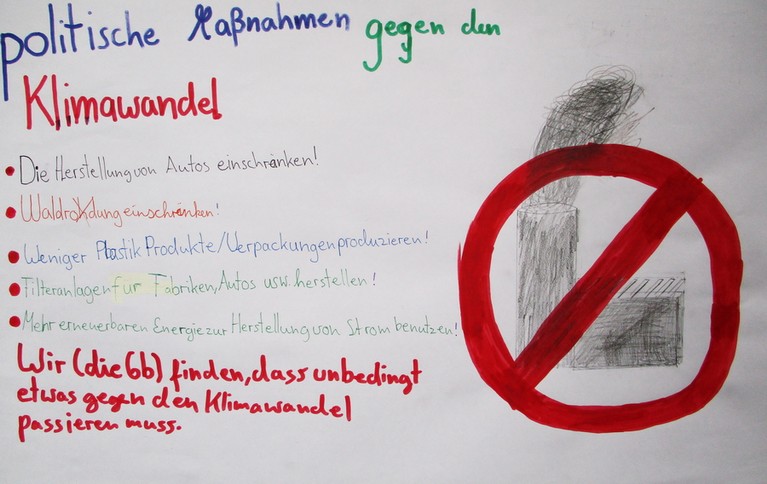 politische Maßnahmen gegen den
Klimawandel
• Die Herstellung von Autos einschränken!
• Waldrodung einschränken!
• Weniger Plastik Produkte/Verpackungen produzieren!
• Filteranlagen für Fabriken, Autos usw. herstellen!
• Mehr erneuerbaren Energie zur Herstellung von Strom benutzen!
Wir (die 6b) finden, dass unbedingt
etwas gegen den Klimawandel
passieren muss.